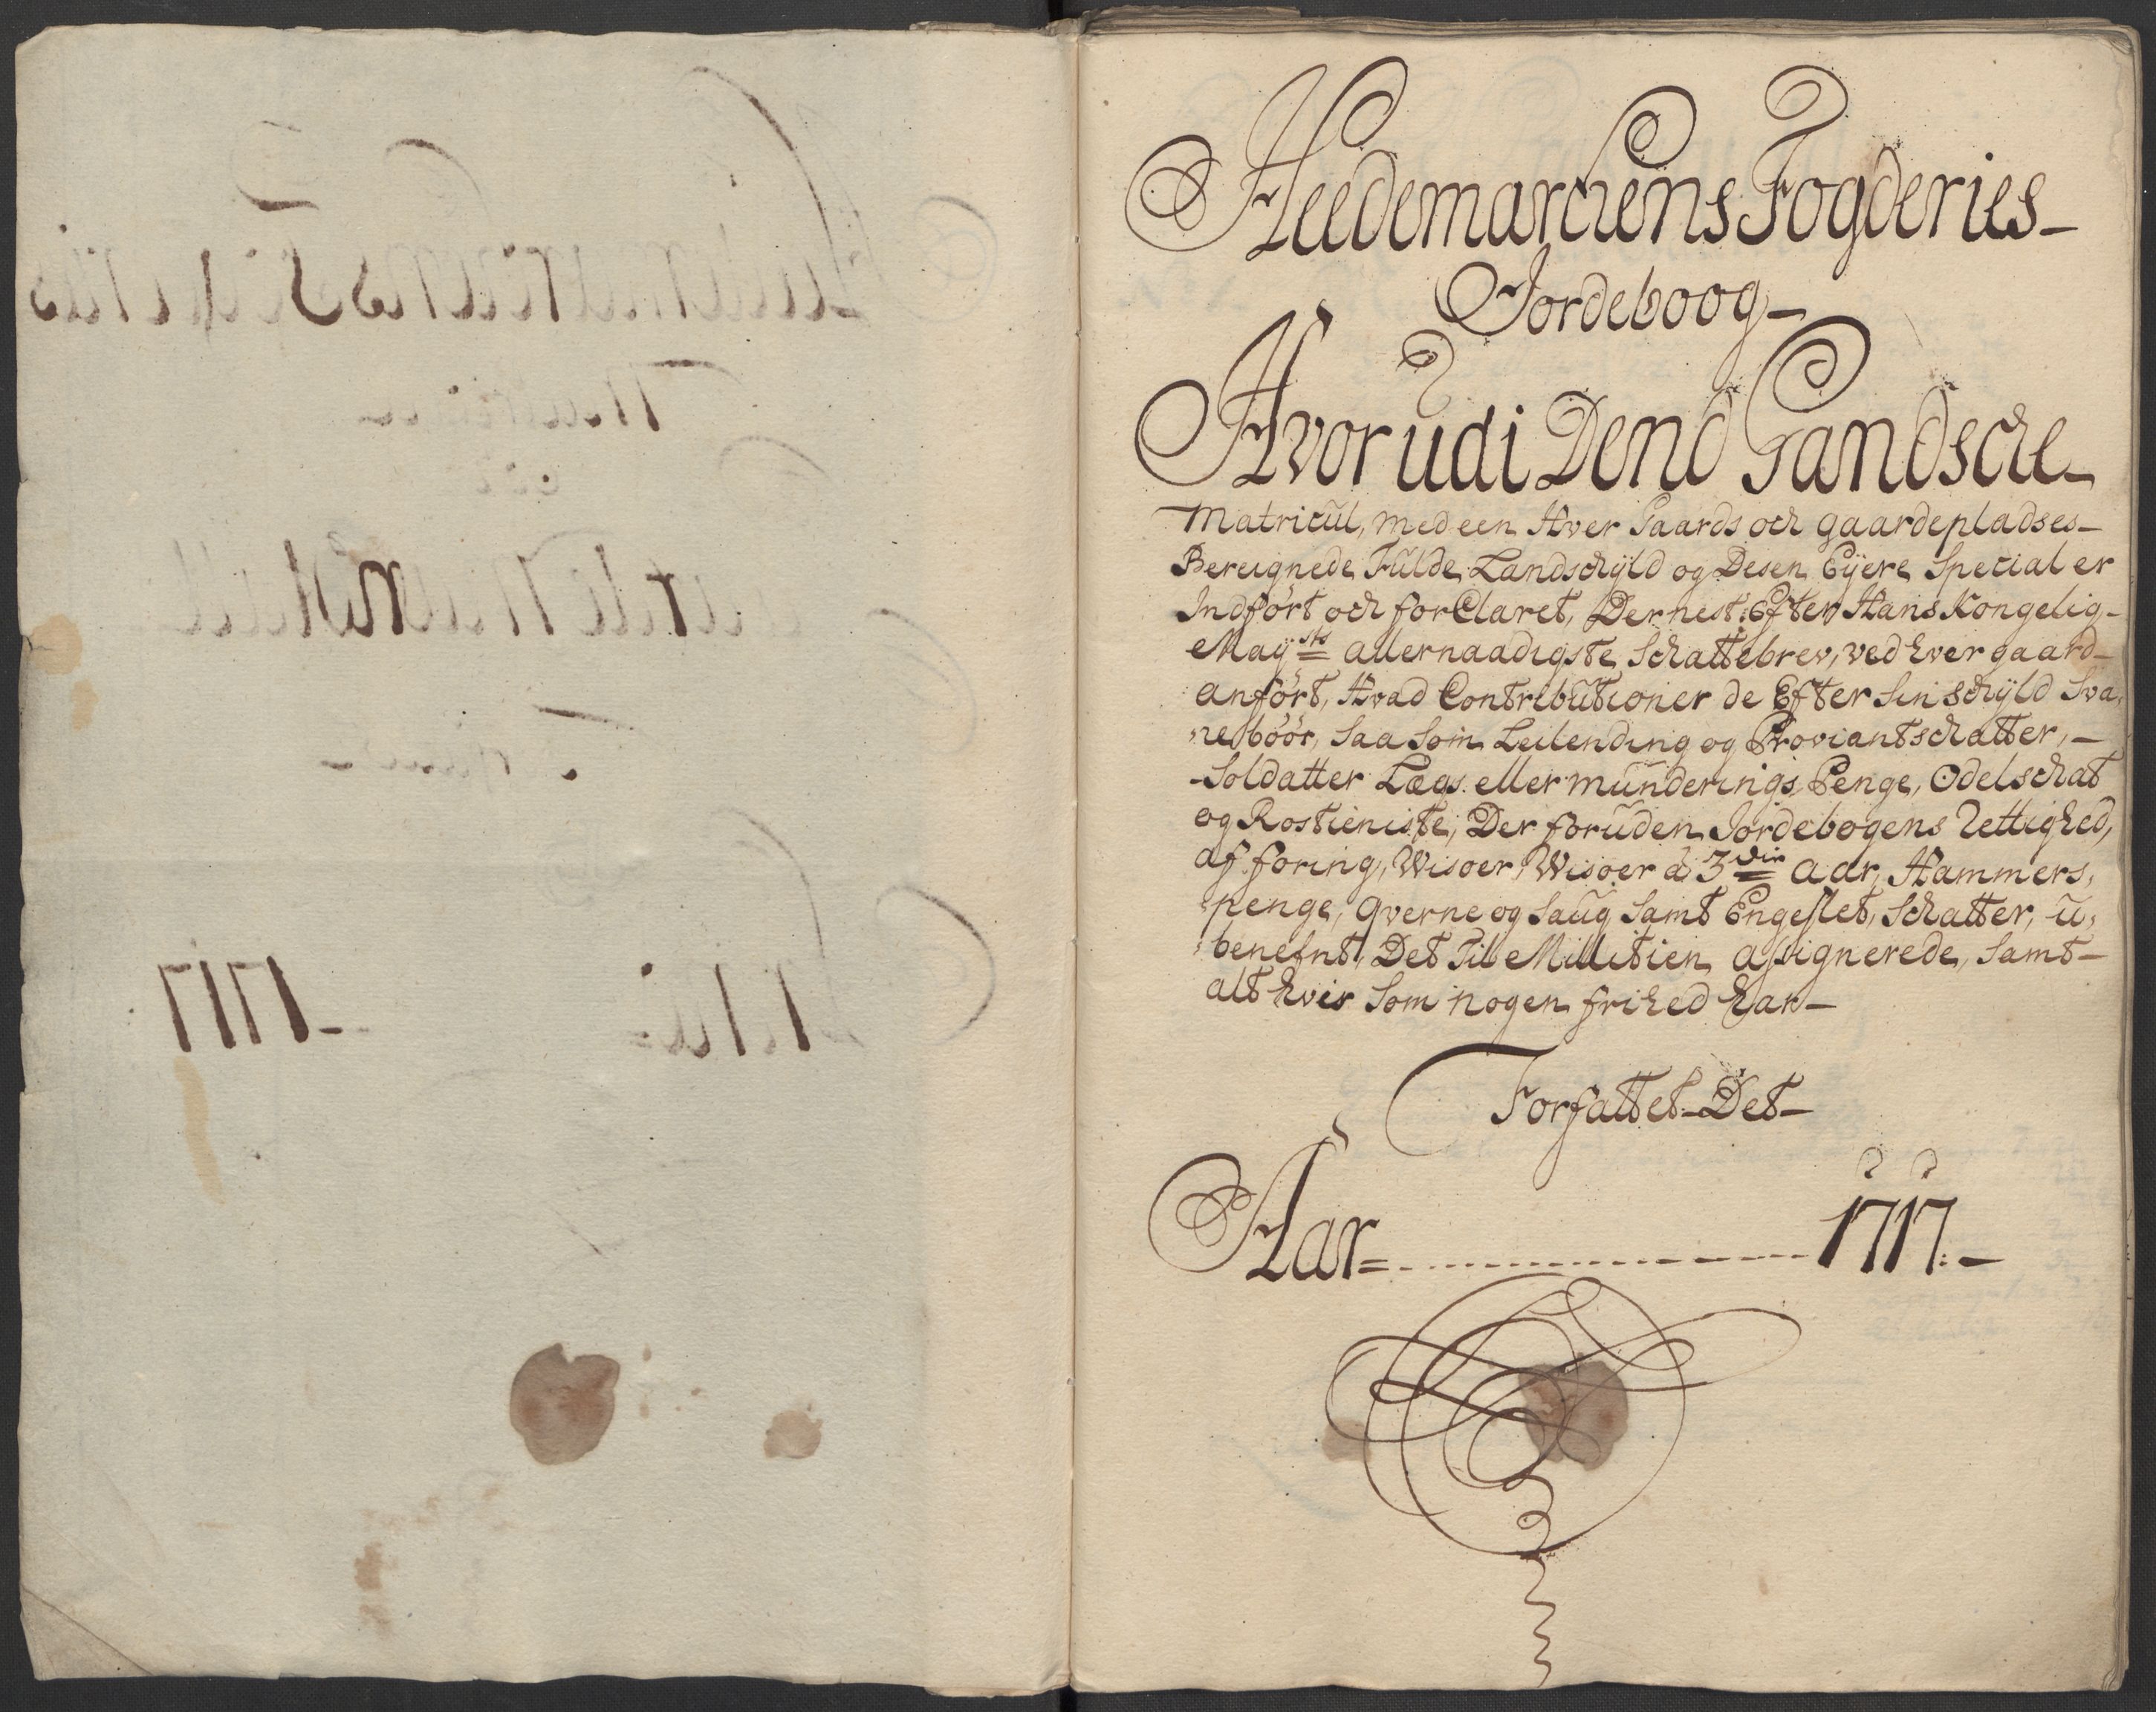 Heedemarchens Fogderies-
Jordeboog-
Hvorudi Dend Gandsche-
Matricul, med een Hver Gaards och gaardepladses-
Bereignede Fulde Landschyld og Desen Eÿere Specialer
Indført och forClaret, Dernest: Efter Hans Kongelig-
Maÿsts allernaadigste Schattebrev, ved hver gaard-
anført, Hvad Contributioner de Efter Sin schÿld Sva,
,,re bøør, Saa Som Leilending og Proviantschatter, -
-Soldatter Lægs eller munderings Penge, Odelschat
og Rostieniste, Der foruden Jordebogens Rettighed,
af foring, Wisøer, Wisøer à 3die Aar, Hammers,
penge, Qverne og Saug Samt Engeslet, Schatter, u,
benefnt, Det Til Millitien assignerede, Samt-
alt hvis Som nogen frihed har-
Forfattet- Det-
Aar= 1717.-